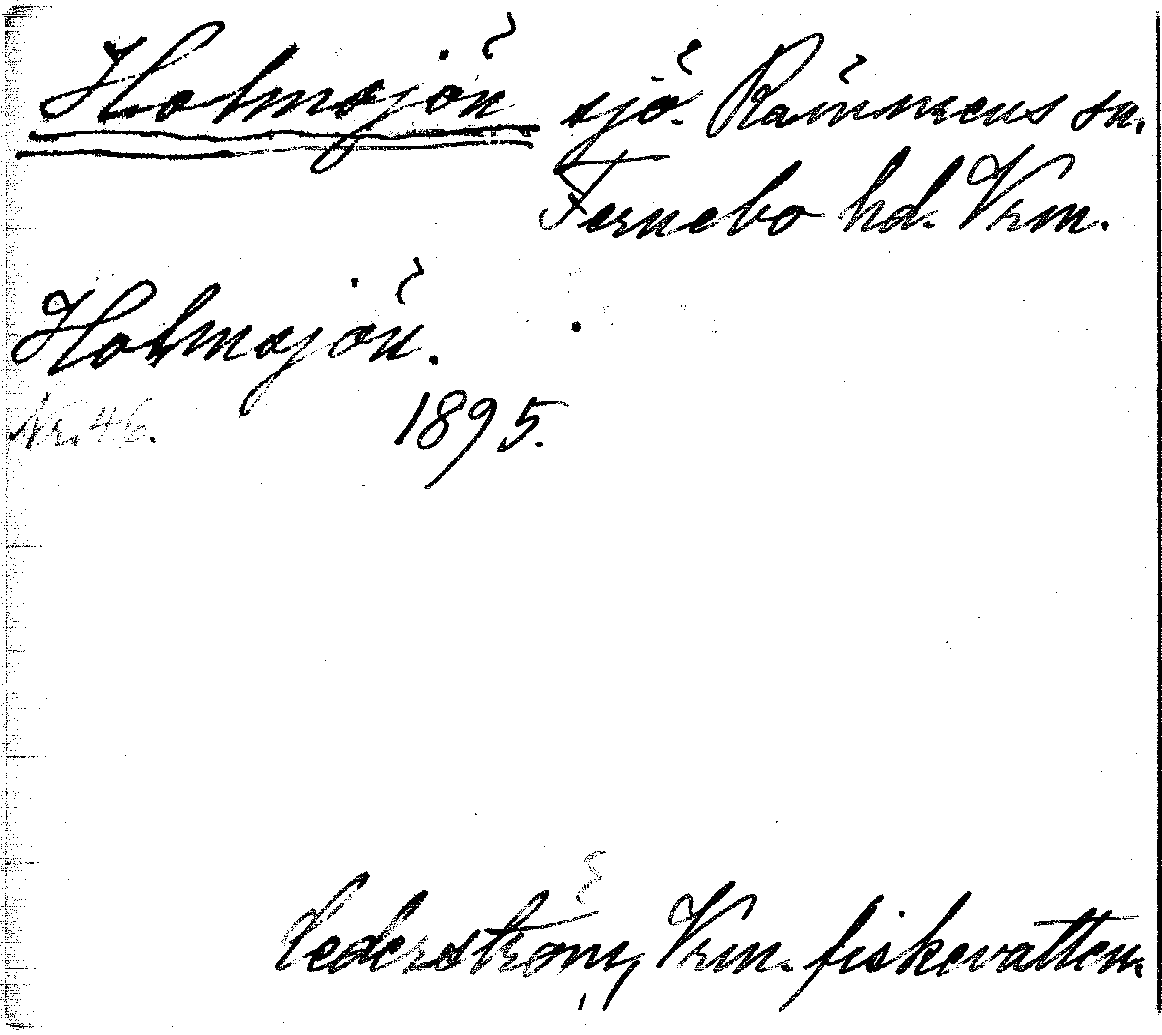 Holmsjön sjö. Rämmens sn.
Fernebo hd. Vrm.
Holmsjön.
Nr. 46. 1895.
Cederström, Vrm. fiskevatten.